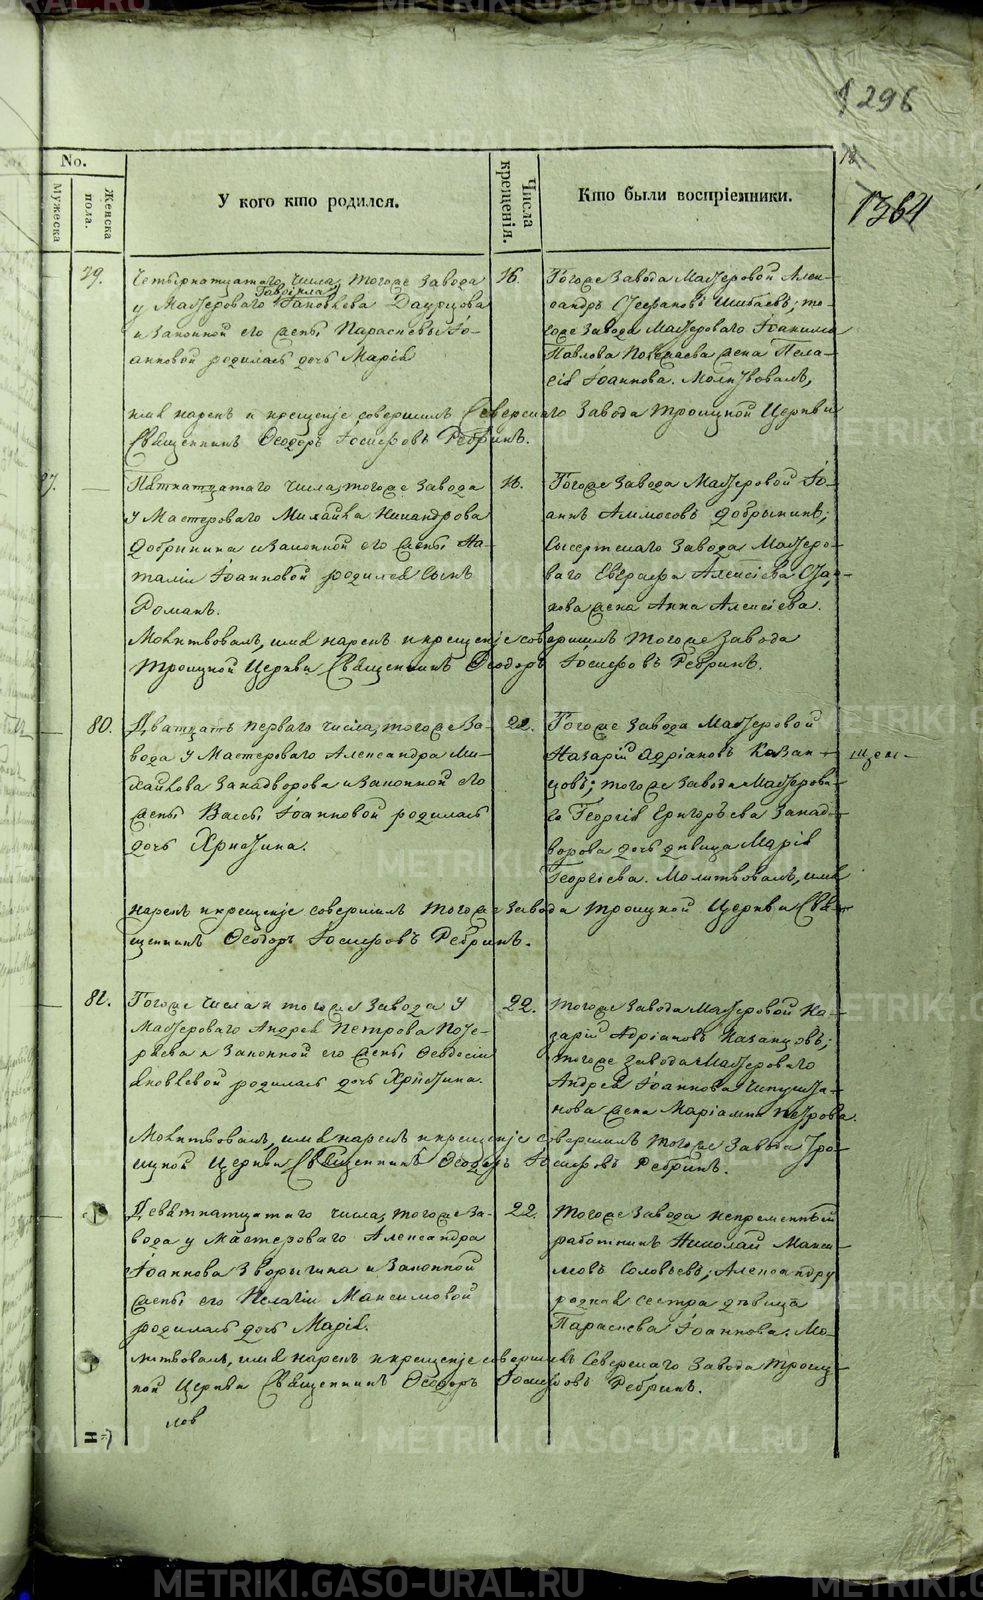 296
1364
No.
Мужеска
Женска пола.
У кого кто родился.
Числа крещенія.
Кто были воспріемники.
79.
Четырнатцатого числа, тогоже завода
у Мастероваго Гаврила Яковлева Даурцова
и законной его жены Парасковьи Іо-
анновой родилась дочь Марія
16.
Тогоже завода Мастеровой Алек-
сандръ Стефановъ Шибаевъ; то-
гоже завода Мастероваго Іоакима
Павлова жена Пела-
гія Іоаннова. Молитвовалъ,
имя нарекъ и крещеніе совершилъ Северскаго завода Троицкой Церкви
Священникъ Ѳеодоръ Іосифовъ Ребринъ.
Пятнатцатаго числа, тогоже завода
у Мастероваго Михайла Никандрова
Добрынина и законной его жены На-
таліи Іоанновой родился сынъ
Романъ.
16.
Тогоже завода Мастеровой Іо-
аннъ Добрынинъ;
Сысертскаго завода Мастеро-
ваго Евграфа Алексіева
жена Анна Алексіева.
Молитвовалъ, имя нарекъ и крещеніе совершилъ тогоже завода
Троицкой Церкви Священникъ Ѳеодоръ Іосифовъ Ребринъ.
80.
Дватцать перваго числа, тогоже за-
вода у Мастероваго Александра Ми-
хайлова Западворова и законной его
жены Вассы Іоанновой родилась
дочь Христина.
22.
Тогоже завода Мастеровой
Назарій Адріановъ Казан-
цовъ; тогоже завода Мастерова-
го Георгія Григорьева Запад-
ворова дочь дѣвица Марія
Георгіева. Молитвовалъ, имя
нарекъ и крещеніе совершилъ тогоже завода Троицкой Церкви Свя-
щенникъ Ѳеодоръ Іосифовъ Ребринъ.
81.
Тогоже числа и тогоже завода у
Мастероваго Андрея Петрова Поте-
ряева и законной его жены Ѳеодосіи
Яковлевой родилась дочь Христина.
22.
Тогоже завода Мастеровой На-
зарій Адріановъ Казанцовъ;
тогоже завода Мастероваго
Андрея Іоаннова Чипушта-
нова жена Маріамна Петрова.
Молитвовалъ, имя нарекъ и крещеніе совершилъ тогоже завода Тро-
ицкой Церкви Священникъ Ѳеодоръ Іосифовъ Ребринъ.
Девятнатцатаго числа, тогоже за-
вода у Мастероваго Александра
Іоаннова Зворыгина и законной
жены его Пелагіи Максимовой
родилась дочь Марія.
22.
Тогоже завода непременный
работникъ Николай Макси-
мовъ Соловьевъ; Александру
родная сестра дѣвица
Параскева Іоаннова. Мо-
литвовалъ, имя нарекъ и крещеніе совершилъ Северскаго завода Троиц-
кой Церкви Священникъ Ѳеодоръ Іосифовъ Ребринъ.
METRIKI.GASO-URAL.RU